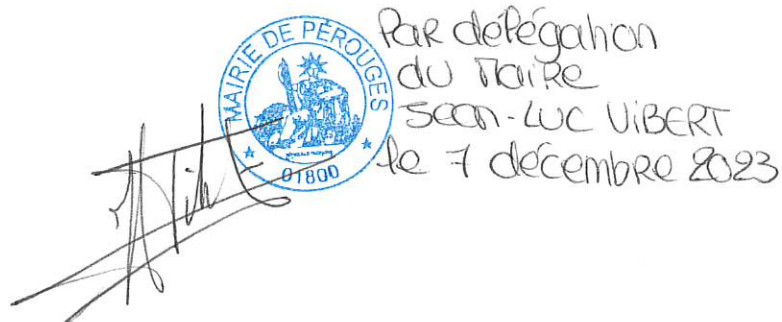 MAIRIE DE PÉROUGES
01800
Par délégation
du Maire
Jean-Luc VIBERT
le 7 décembre 2023